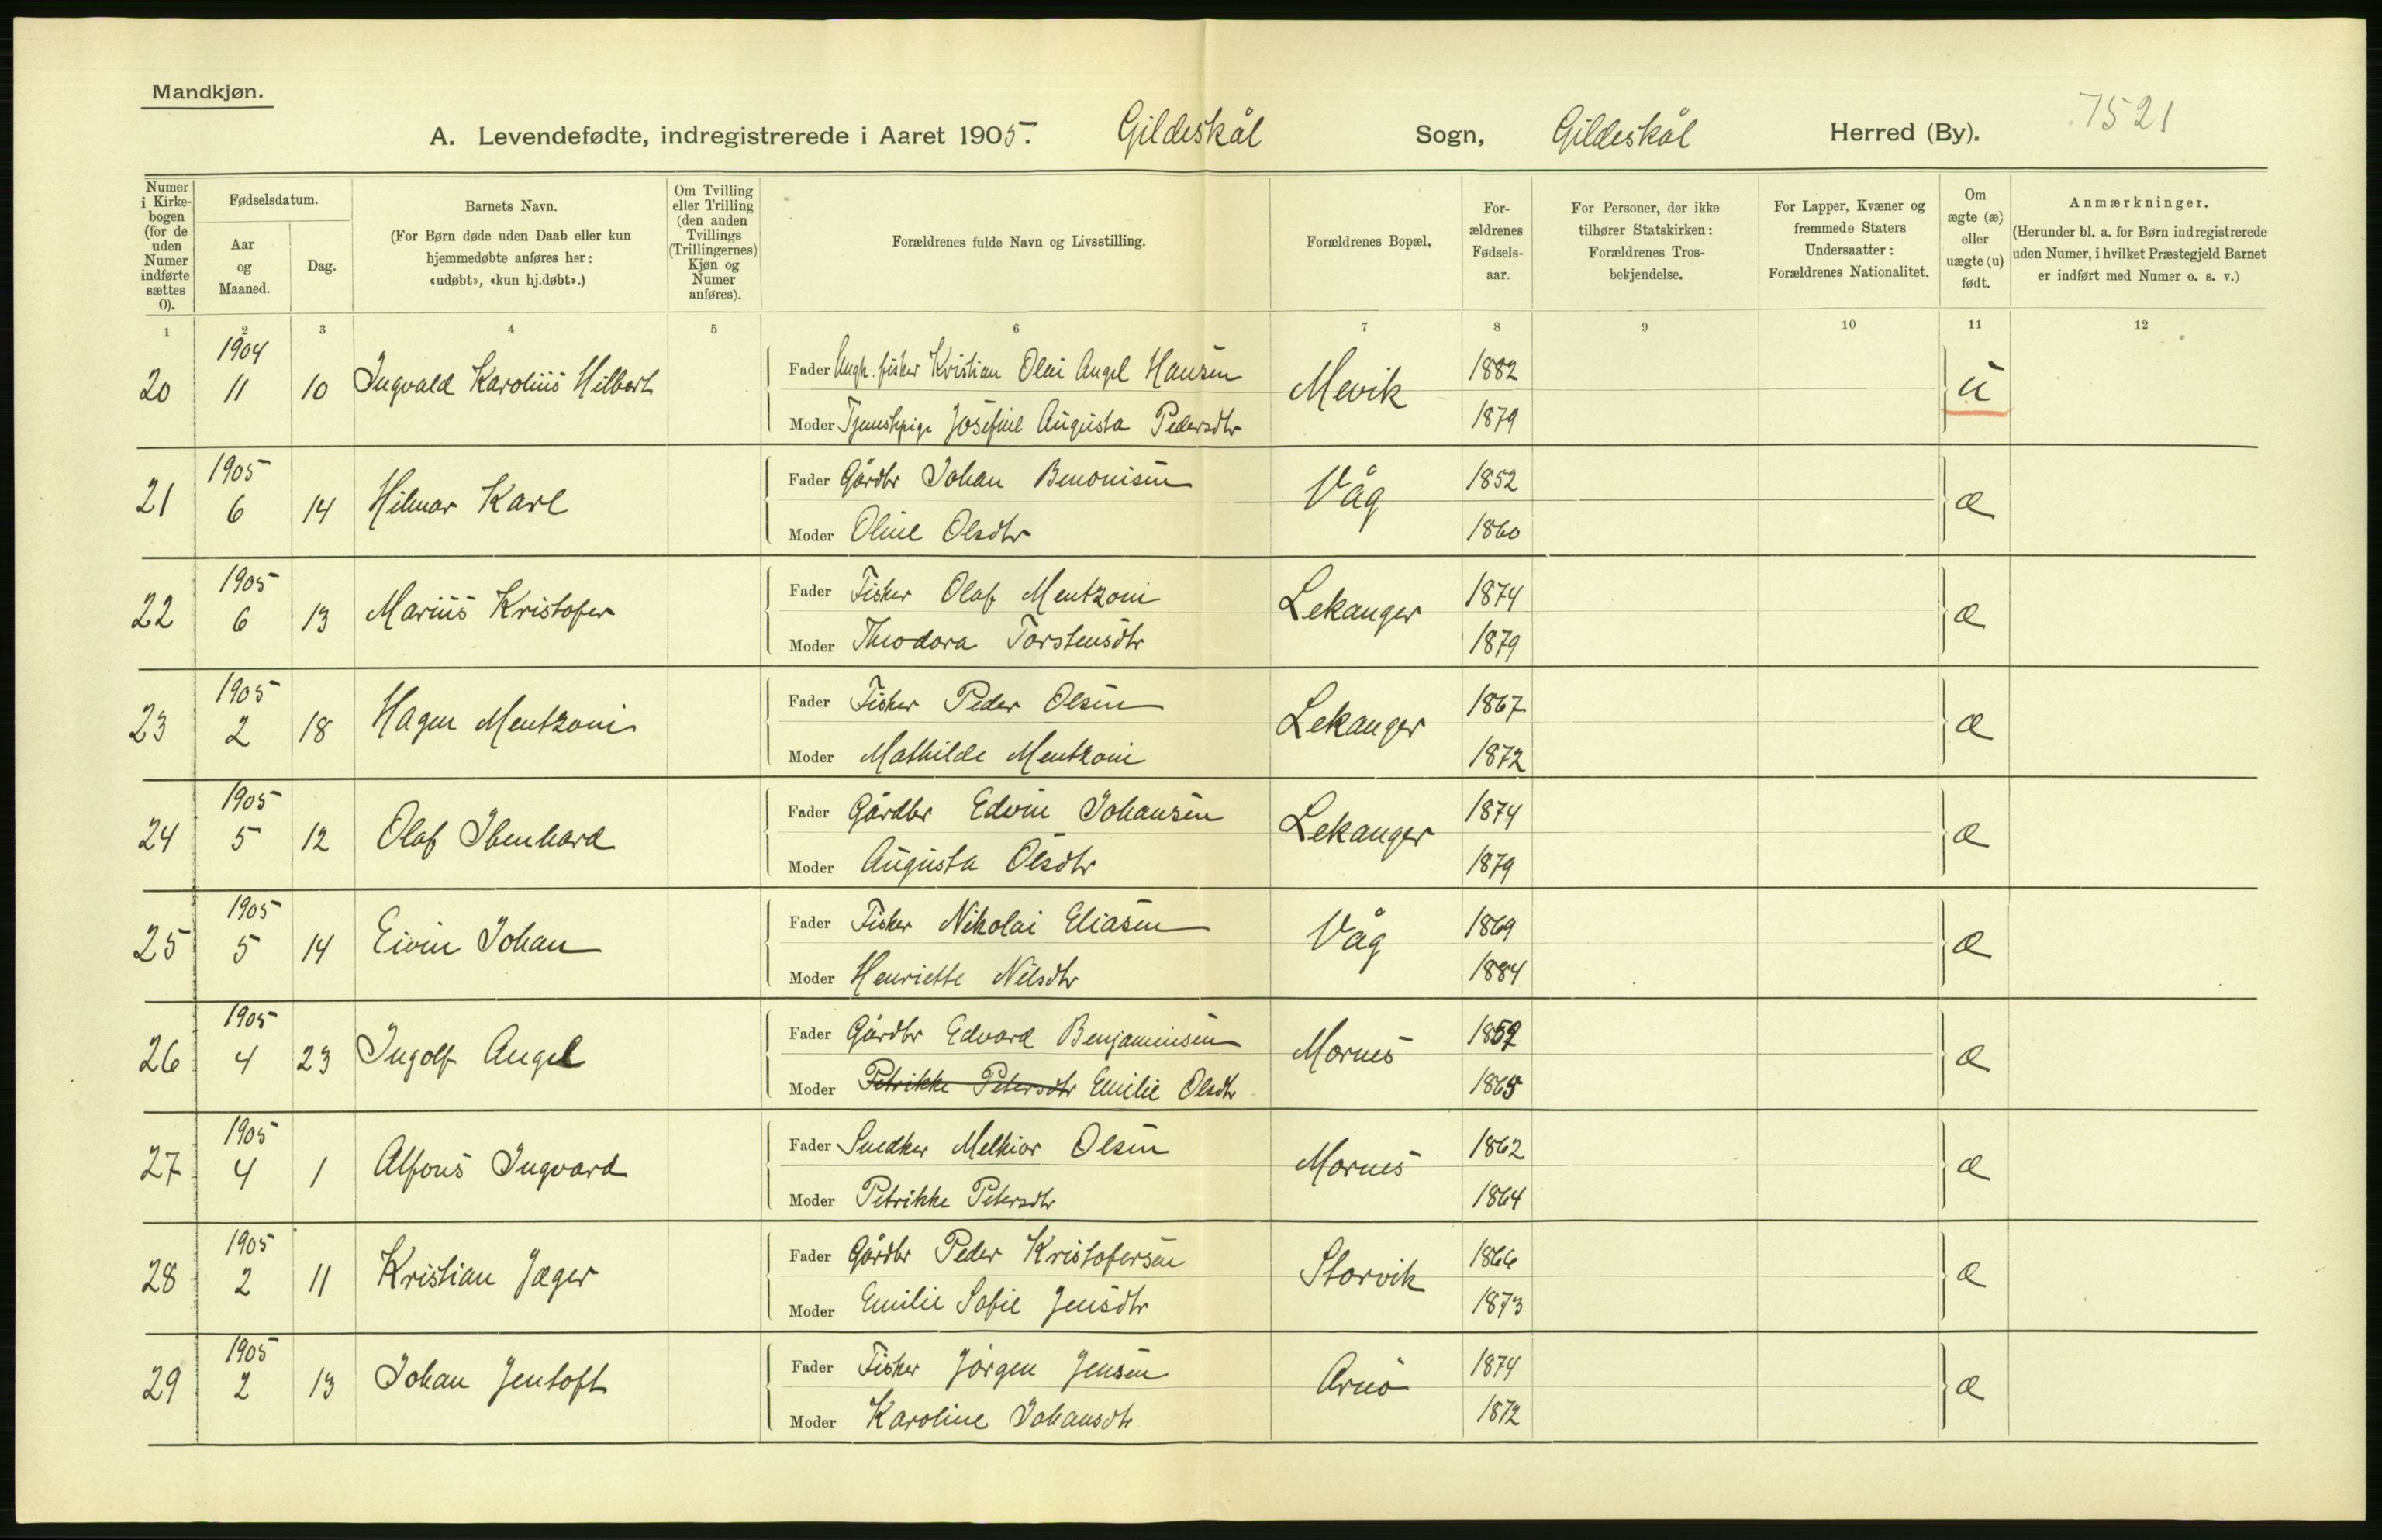 Mandkjøn.
7521
A. Levendefødte, indregistrerede i Aaret 1905. Gildeskål Sogn, Gildeskål Herred (By).
Numer i Kirkebogen (for de uden Numer indførte sættes 0).
Fødselsdatum.
Aar og Maaned.
Dag.
Barnets Navn.
(For Børn døde uden Daab eller kun hjemmedøbte anføres her: «udøbt», «kun hj.døbt».)
Om Tvilling eller Trilling (den anden Tvillings (Trillingernes) Kjøn og Numer anføres).
Forældrenes fulde Navn og Livsstilling.
Forældrenes Bopæl,
Forældrenes Fødselsaar.
For Personer, der ikke tilhører Statskirken: Forældrenes Trosbekjendelse.
For Lapper, Kvæner og fremmede Staters Undersaatter: Forældrenes Nationalitet.
Om ægte (æ) eller uægte (u) født.
Anmærkninger.
(Herunder bl. a. for Børn indregistrerede uden Numer, i hvilket Præstegjeld Barnet er indført med Numer o. s. v.)
1 2 3 4 5 6 7 8 9 10 11 12
1904
20 11 10 Ingvald Karolius Hilbert Fader Ungk. fisker Kristian Olai Angel Hansen Mevik 1882 u
Moder Tjenestepige Josefine Augusta Pedersdtr 1879
1905
21 6 14 Hilmar Karl Fader Gårdbr Johan Benonisen Våg 1852 æ
Moder Oline Olsdtr 1860
1905
22 6 13 Marius Kristofer Fader Fisker Olaf Mentzoni Lekanger 1874 æ
Moder Theodora Torstensdtr 1879
1905
23 2 18 Hagen Mentzoni Fader Fisker Peder Olsen Lekanger 1867 æ
Moder Mathilde Mentzoni 1872
1905
24 5 12 Olaf Ibenhard Fader Gårdbr Edvin Johansen Lekanger 1874 æ
Moder Augusta Olsdtr 1879
1905
25 5 14 Eivin Johan Fader Fisker Nikolai Eliasen Våg 1869 æ
Moder Henriette Nilsdtr 1884
1905
26 4 23 Ingolf Angel Fader Gårdbr Edvard Benjaminsen Mornes æ
Moder Petrikke Petersdtr Emilie Olsdtr 1865
1905
27 4 1 Alfons Ingvard Fader Snedker Melkior Olsen Mornes 1862 æ
Moder Petrikke Petersdtr 1864
1905
28 2 11 Kristian Jæger Fader Gårdbr Peder Kristofersen Storvik 1866 æ
Moder Emilie Sofie Jensdtr 1873
1905
29 2 13 Johan Jentoft Fader Fisker Jørgen Jensen Arnø 1874 æ
Moder Karoline Johansdtr 1872